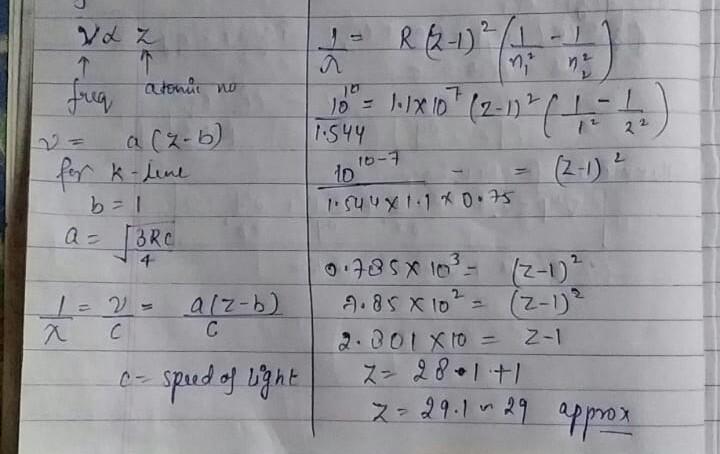 ν ∝ Z
↑ ↑
freq atomic no
ν = a(z-b)
for K-line
b = 1
a = √(3RC/4)
1/λ = ν/c = a(z-b)/c
c = speed of light
1/λ = R(z-1)² (1/n₁² - 1/n₂²)
10¹⁰/1.544 = 1.1×10⁷ (z-1)² (1/1² - 1/2²)
10¹⁰⁻⁷/1.544×1.1×0.75 - = (z-1)²
0.785×10³ = (z-1)²
7.85×10² = (z-1)²
2.801×10 = z-1
z = 28.1+1
z = 29.1 ~ 29 approx